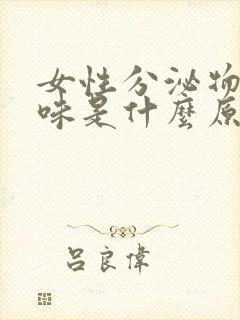 女性分泌物
味是什麼原
吕良偉